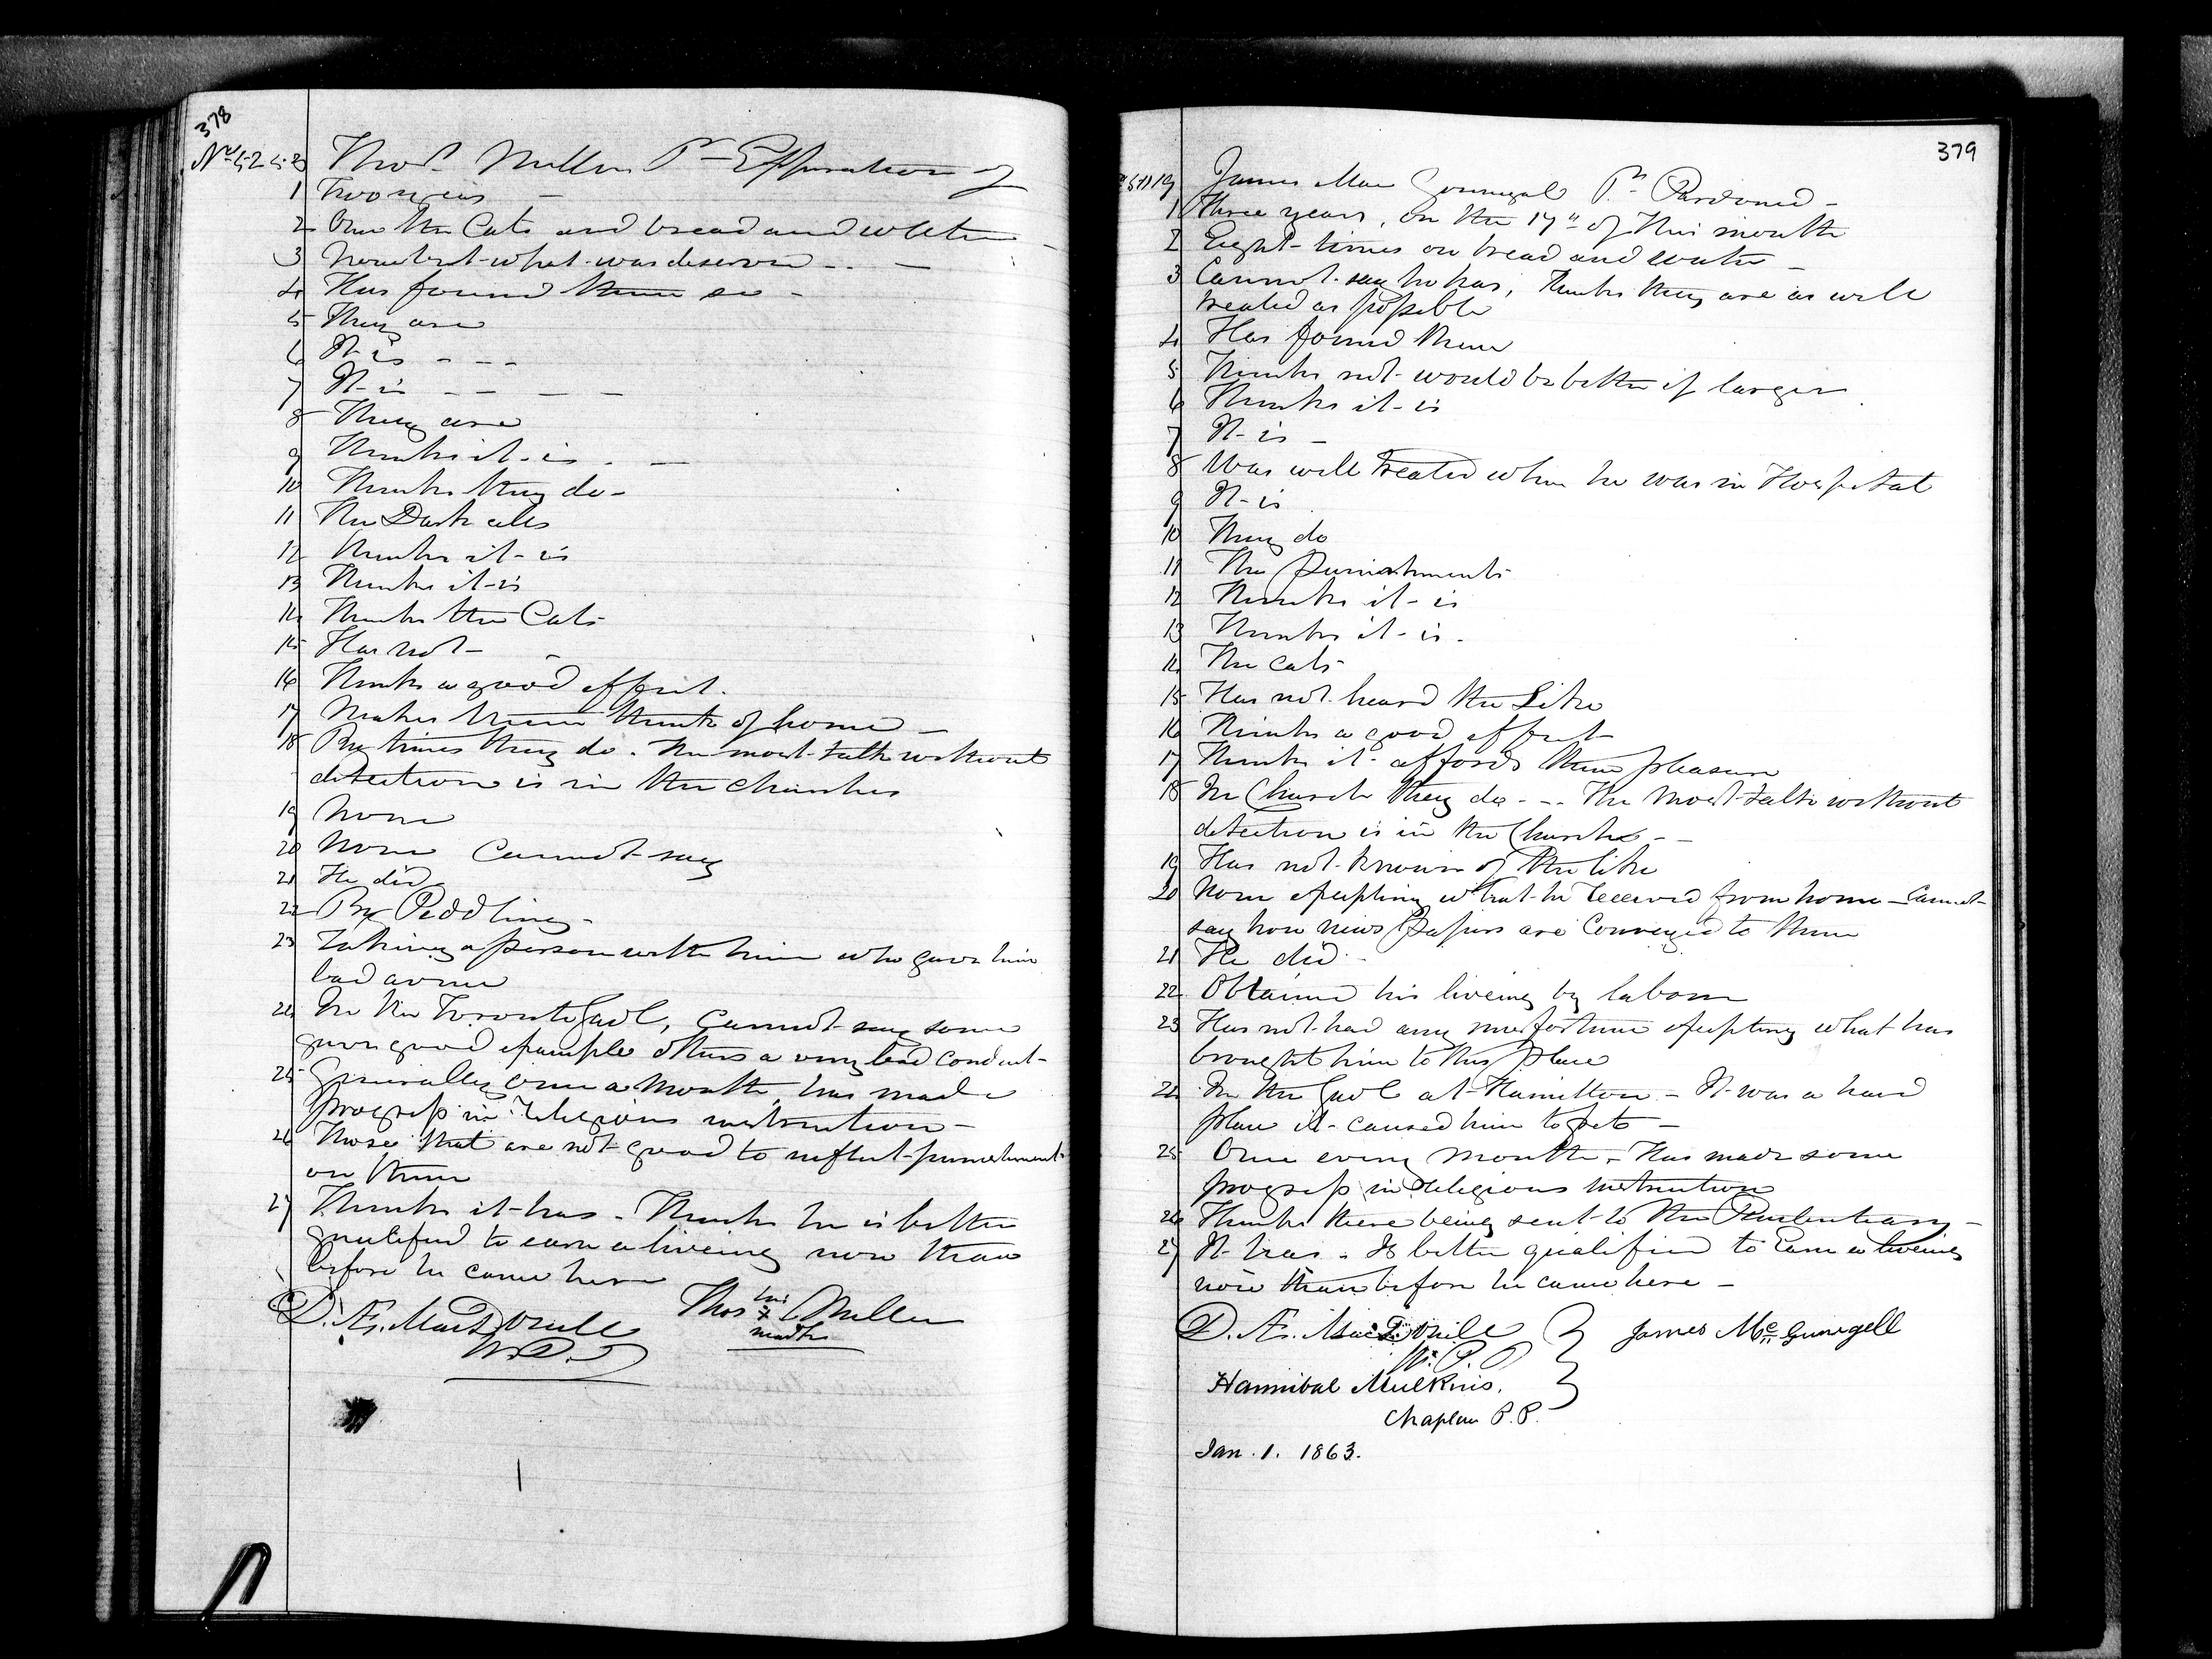 378
Thos. Miller Pr Expiration of
1 Two years
2 Once the Cats and bread and water
3 None but what was deserving
4 Has found them so
5 They are
6 It is
7 It is
8 They are
9 Thinks it is
10 Thinks they do
11 The Dark cells
12 Thinks it is
13 Thinks it is
14 Thinks the Cats
15 Has not
16 Thinks a good effect.
17 Makes them think of home
18 By times they do. The most talk without
detection is in the churches
19 None
20 None Cannot say
21 He did
22 By Peddling
23 Taking a person with him who gave him
bad
24 In the Toronto Gaol, Cannot say some
gave good example others a very bad conduct
25 Generally once a Month, has made
progress in religious instruction
26 Those that are not good to inflict punishment
on them
27 Thinks it has. Thinks he is better
qualified to earn a liveing now than
before he came here
D. Æ. MacDonell
W.P.P.
Thos his x Miller
mark
379
James Mac Gounegal Pr Pardoned
1 Three years, on the 17" of this month
2 Eight times on bread and water
3 Cannot say he has, thinks they are as well
treated as possible
4 Has found them
5 Thinks not would be better if larger
6 Thinks it is
7 It is
8 Was well treated when he was in Hospital
9 It is
10 They do
11 The punishments
12 Thinks it is
13 Thinks it is.
14 The cats
15 Has not heard the Like
16 Thinks a good effect
17 Thinks it affords them pleasure
18 In Church they do - The Most talk without
detection is in the Church
19 Has not known of the like
20 None excepting what he received from home - Cannot
say how news Papers are Conveyed to them
21 He did
22 Obtained his liveing by labour
23 Has not had any misfortune excepting what has
brought him to this place
24 In the Gaol at Hamilton - It was a hard
place it caused him to
25 Once every month. Has made some
progress in religious instruction
26 Thinks there being sent to the Penitentiary
27 It has. Is better qualified to earn a liveing
now than before he came here
D. Æ. MacDonell
W.P.P.
James Mc Gunegell
Hannibal Mulkins.
Chaplain P.P.
Jan. 1. 1863.